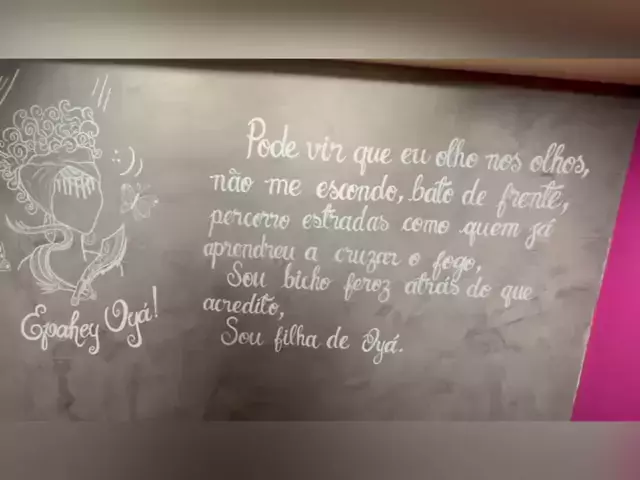 Pode vir que eu olho nos olhos,
não me escondo, bato de frente,
percorro estradas como quem já
aprendreu a cruzar o fogo,
Sou bicho feroz atrás do que
acredito,
Sou filha de Oyá.
Epahey Oyá!